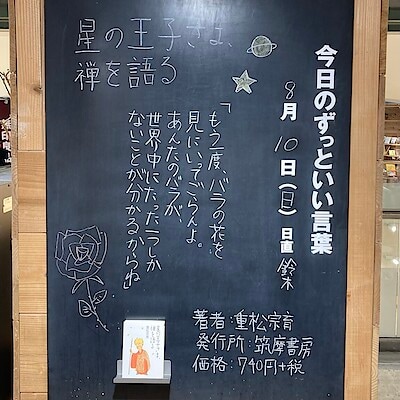 今日のずっといい言葉
8月10日(日)日直 鈴木
星の王子さま、
禅を語る
「もう一度、バラの花を
見にいってごらんよ。
あんたのバラが、
世界中にたった一つしか
ないことが分かるからね」
著者:重松宗育
発行所:筑摩書房
価格:740円+税